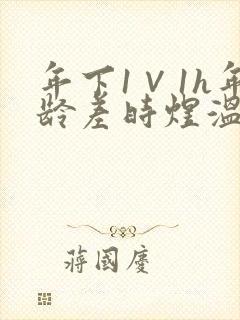 年下1V1h年
龄差时煌温
蒋国庆